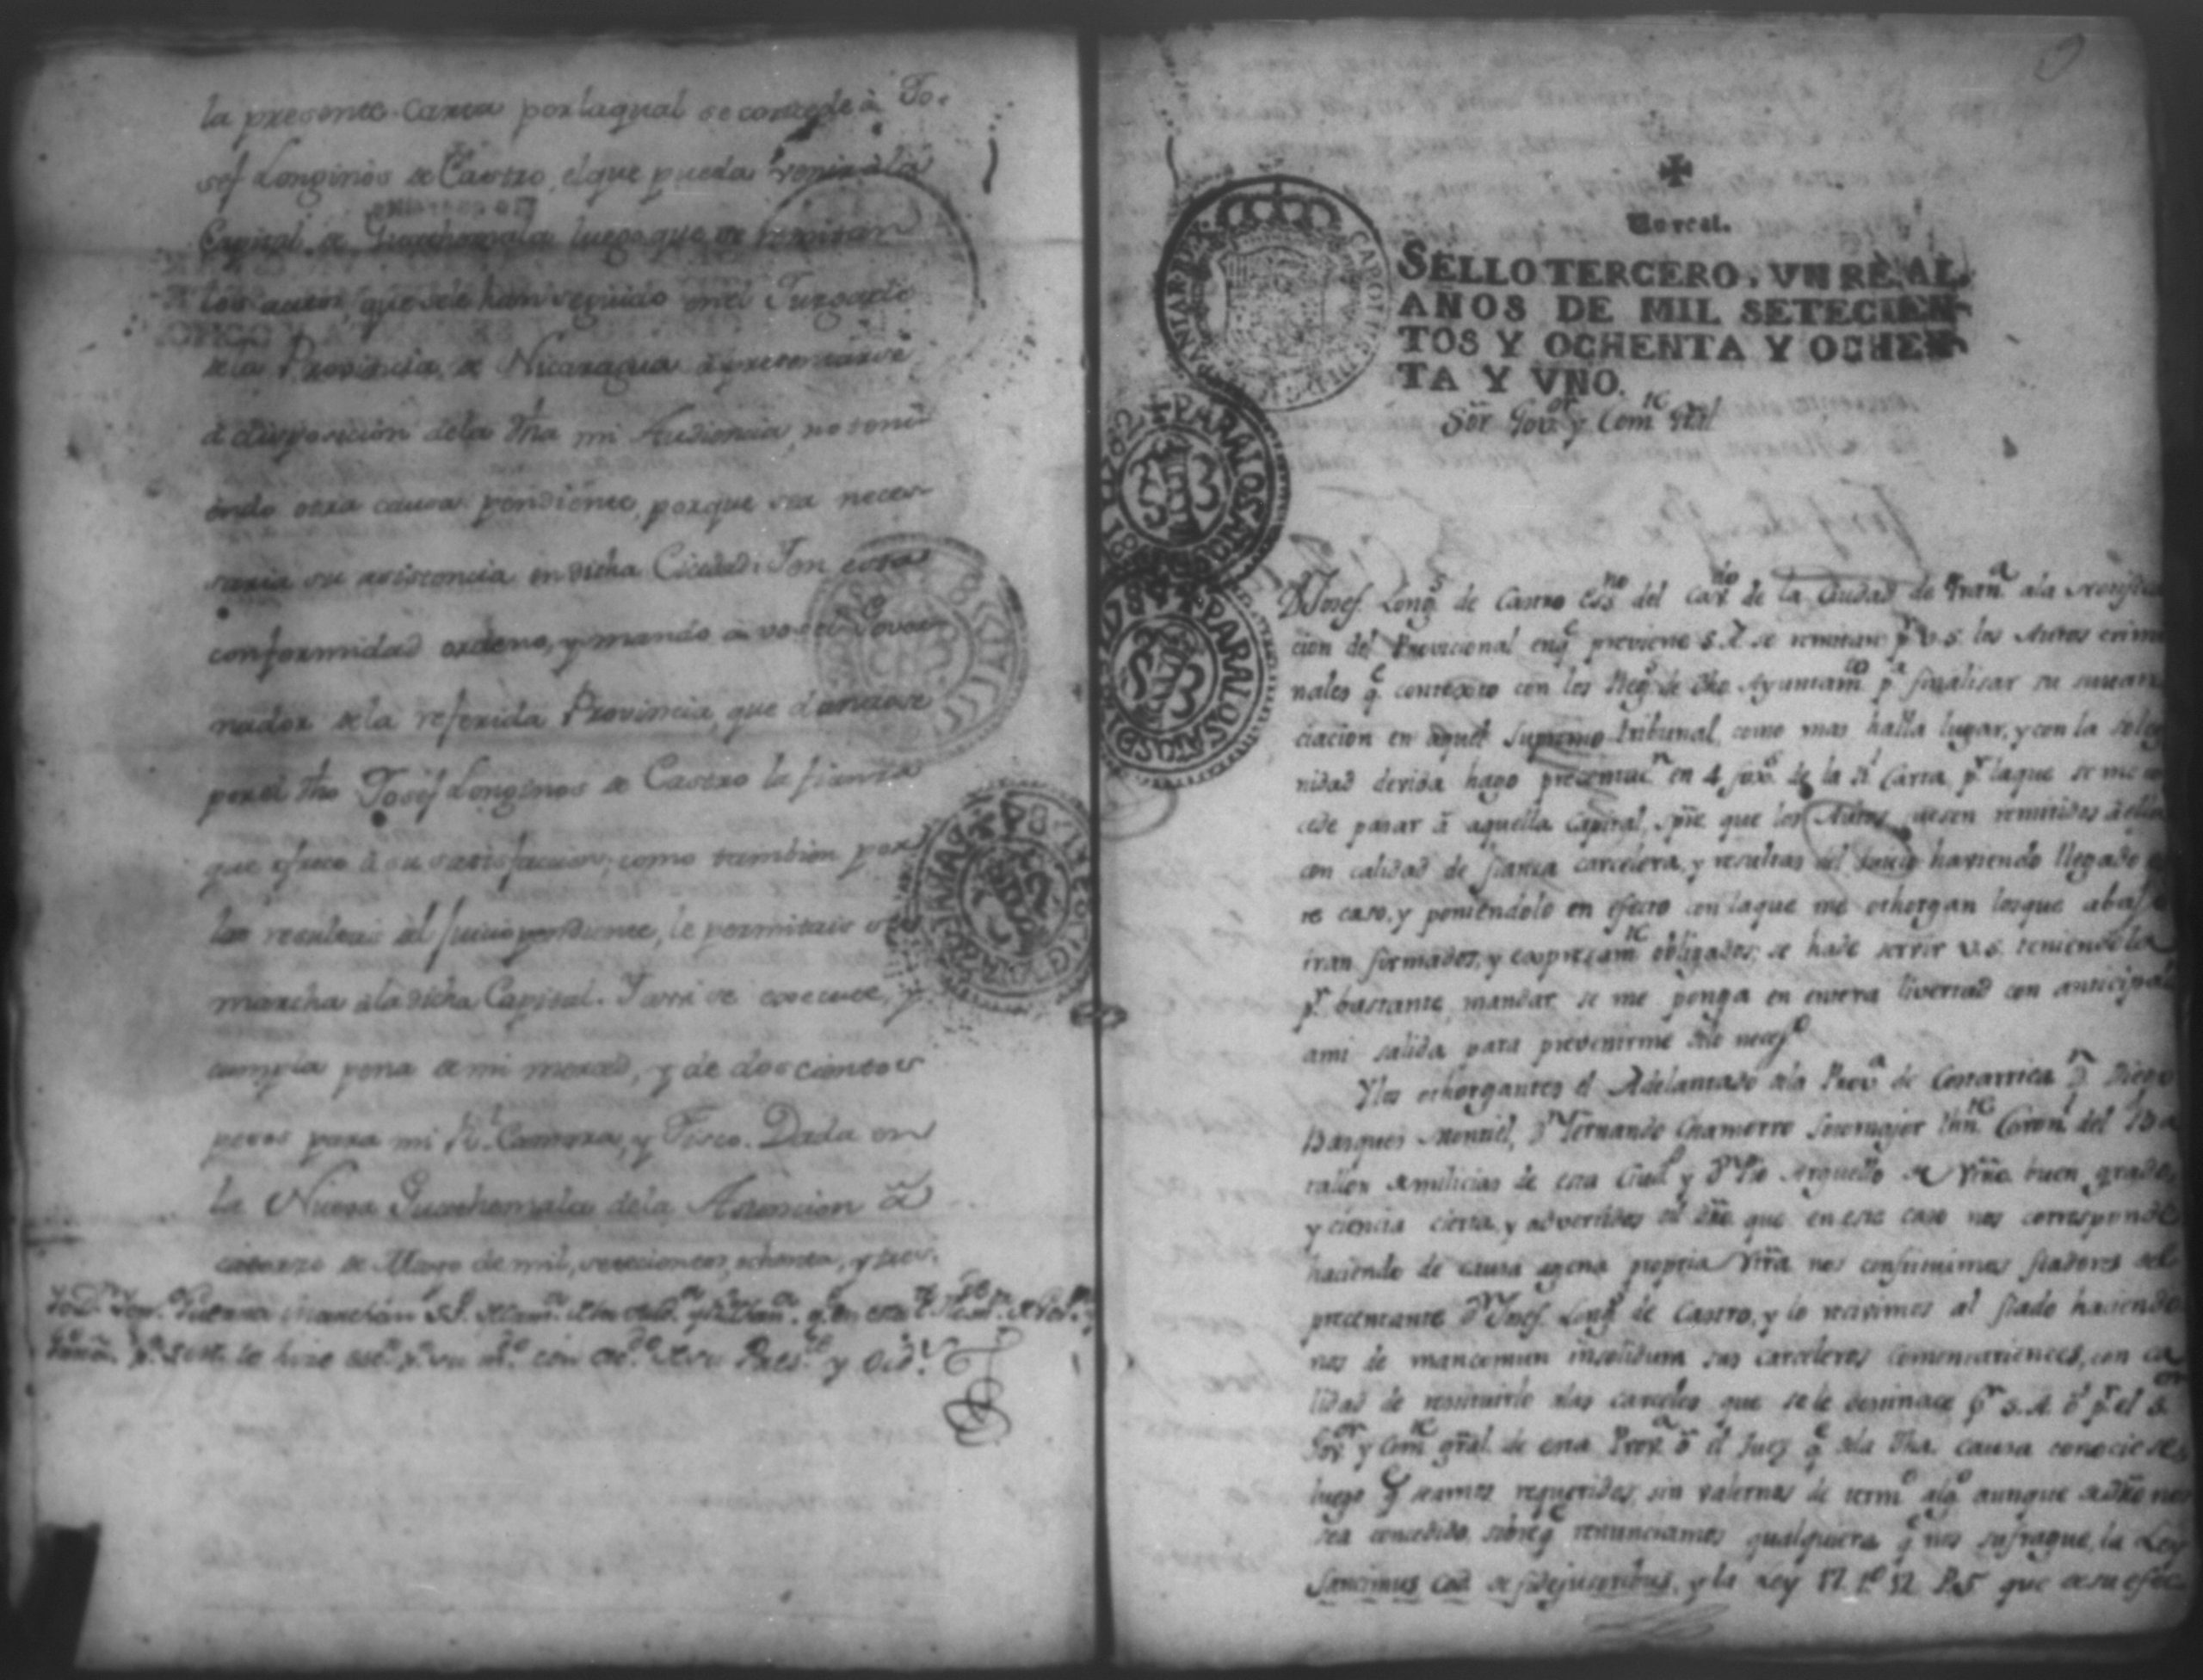 la presente Carta por la qual se concede à Jo-
sef Longinos de Castro, el que pueda venir à la
Capital de Guathemala luego que se remitan
los autos, que se le han seguido en el Juzgado
de la Provincia de Nicaragua à presentarse
à disposicion de la dha mi Audiencia, no teni-
endo otra causa pendiente, porque sea neces-
saria su asistencia en dicha Ciudad: Y en esta
conformidad ordeno, y mando a vos el Gover-
nador de la referida Provincia, que dandose
por el dho Josef Longinos de Castro la fianza
que ofrece à su satisfaccion, como tambien por
las resultas del juicio pendiente, le permitais su
marcha à la dicha Capital. Y assi se execute, y
cumpla pena de mi merced, y de doscientos
pesos para mi Rl. Camara, y Fisco. Dada en
la Nueva Guathemala de la Asuncion à
catorze de Mayo de mil, setecientos, ochenta, y tres.
Un real.
SELLO TERCERO, VN REAL,
AÑOS DE MIL SETECIEN-
TOS Y OCHENTA Y OCHEN-
TA Y VNO.
Sor. Govor. y Comte. Gral
Dn Josef Longs. de Castro Essno del Cavdo de la Ciudad de Grana. a la notifica
cion del Provicional enqe previene S.A. se remitan pr. V.S. los Autos crimi
nales qe. contexto con los Regs. de dho Ayuntamto. pa. finalisar su sustan
ciacion en aquel Supremo tribunal, como mas halla lugar, y con la soleg
nidad devida hago presentacn. en 4 foxs. de la Rl Carta pr. la que se me con
cede pasar à aquella Capital, spre que los Autos fuesen remitidos à ella
con calidad de fianza carcelera, y resultas del Juicio haviendo llegado es
te caso, y poniendolo en efecto con la que me othorgan los que abajo
iran firmados, y expresamte obligados; se hade servir V.S. teniendola
pr. bastante, mandar se me ponga en entera livertad con anticipan
a mi salida para prevenirme de lo neceso.
Y los othorgantes el Adelantado de la Prova de Costarrica Dn Diego
Basques Montiel, Dn Fernando Chamorro Sotomajor thnte. Coronl. del Ba
tallon de milicias de esta Ciud. y Dn Pio Arguello de Ntro. buen grado,
y ciencia cierta y advertidos del dro. que en este caso nos corresponde
haciendo de causa agena propia Ntra nos constituimos fiadores del
precentante Dn Josef. Longs. de Castro, y lo recivimos al fiado haciendo
nos de mancomun insolidum sus carceleros Comentarienses, con ca
lidad de restituirlo alas carceles que se le destinace pr S.A. ò pr. el Sor.
Govor. y Comte gral. de esta Prova. ò el Juez qe de la dha. causa conociese
luego qe seamos requeridos, sin valernos de termo algo aunque de dro nos
sea concedido, sobre qe renunciamos qualquiera qe nos sufrague, la Ley
Sancimus Cod. de fidejusoribus, y la Ley 17. to. 12. P. 5 que de su efec